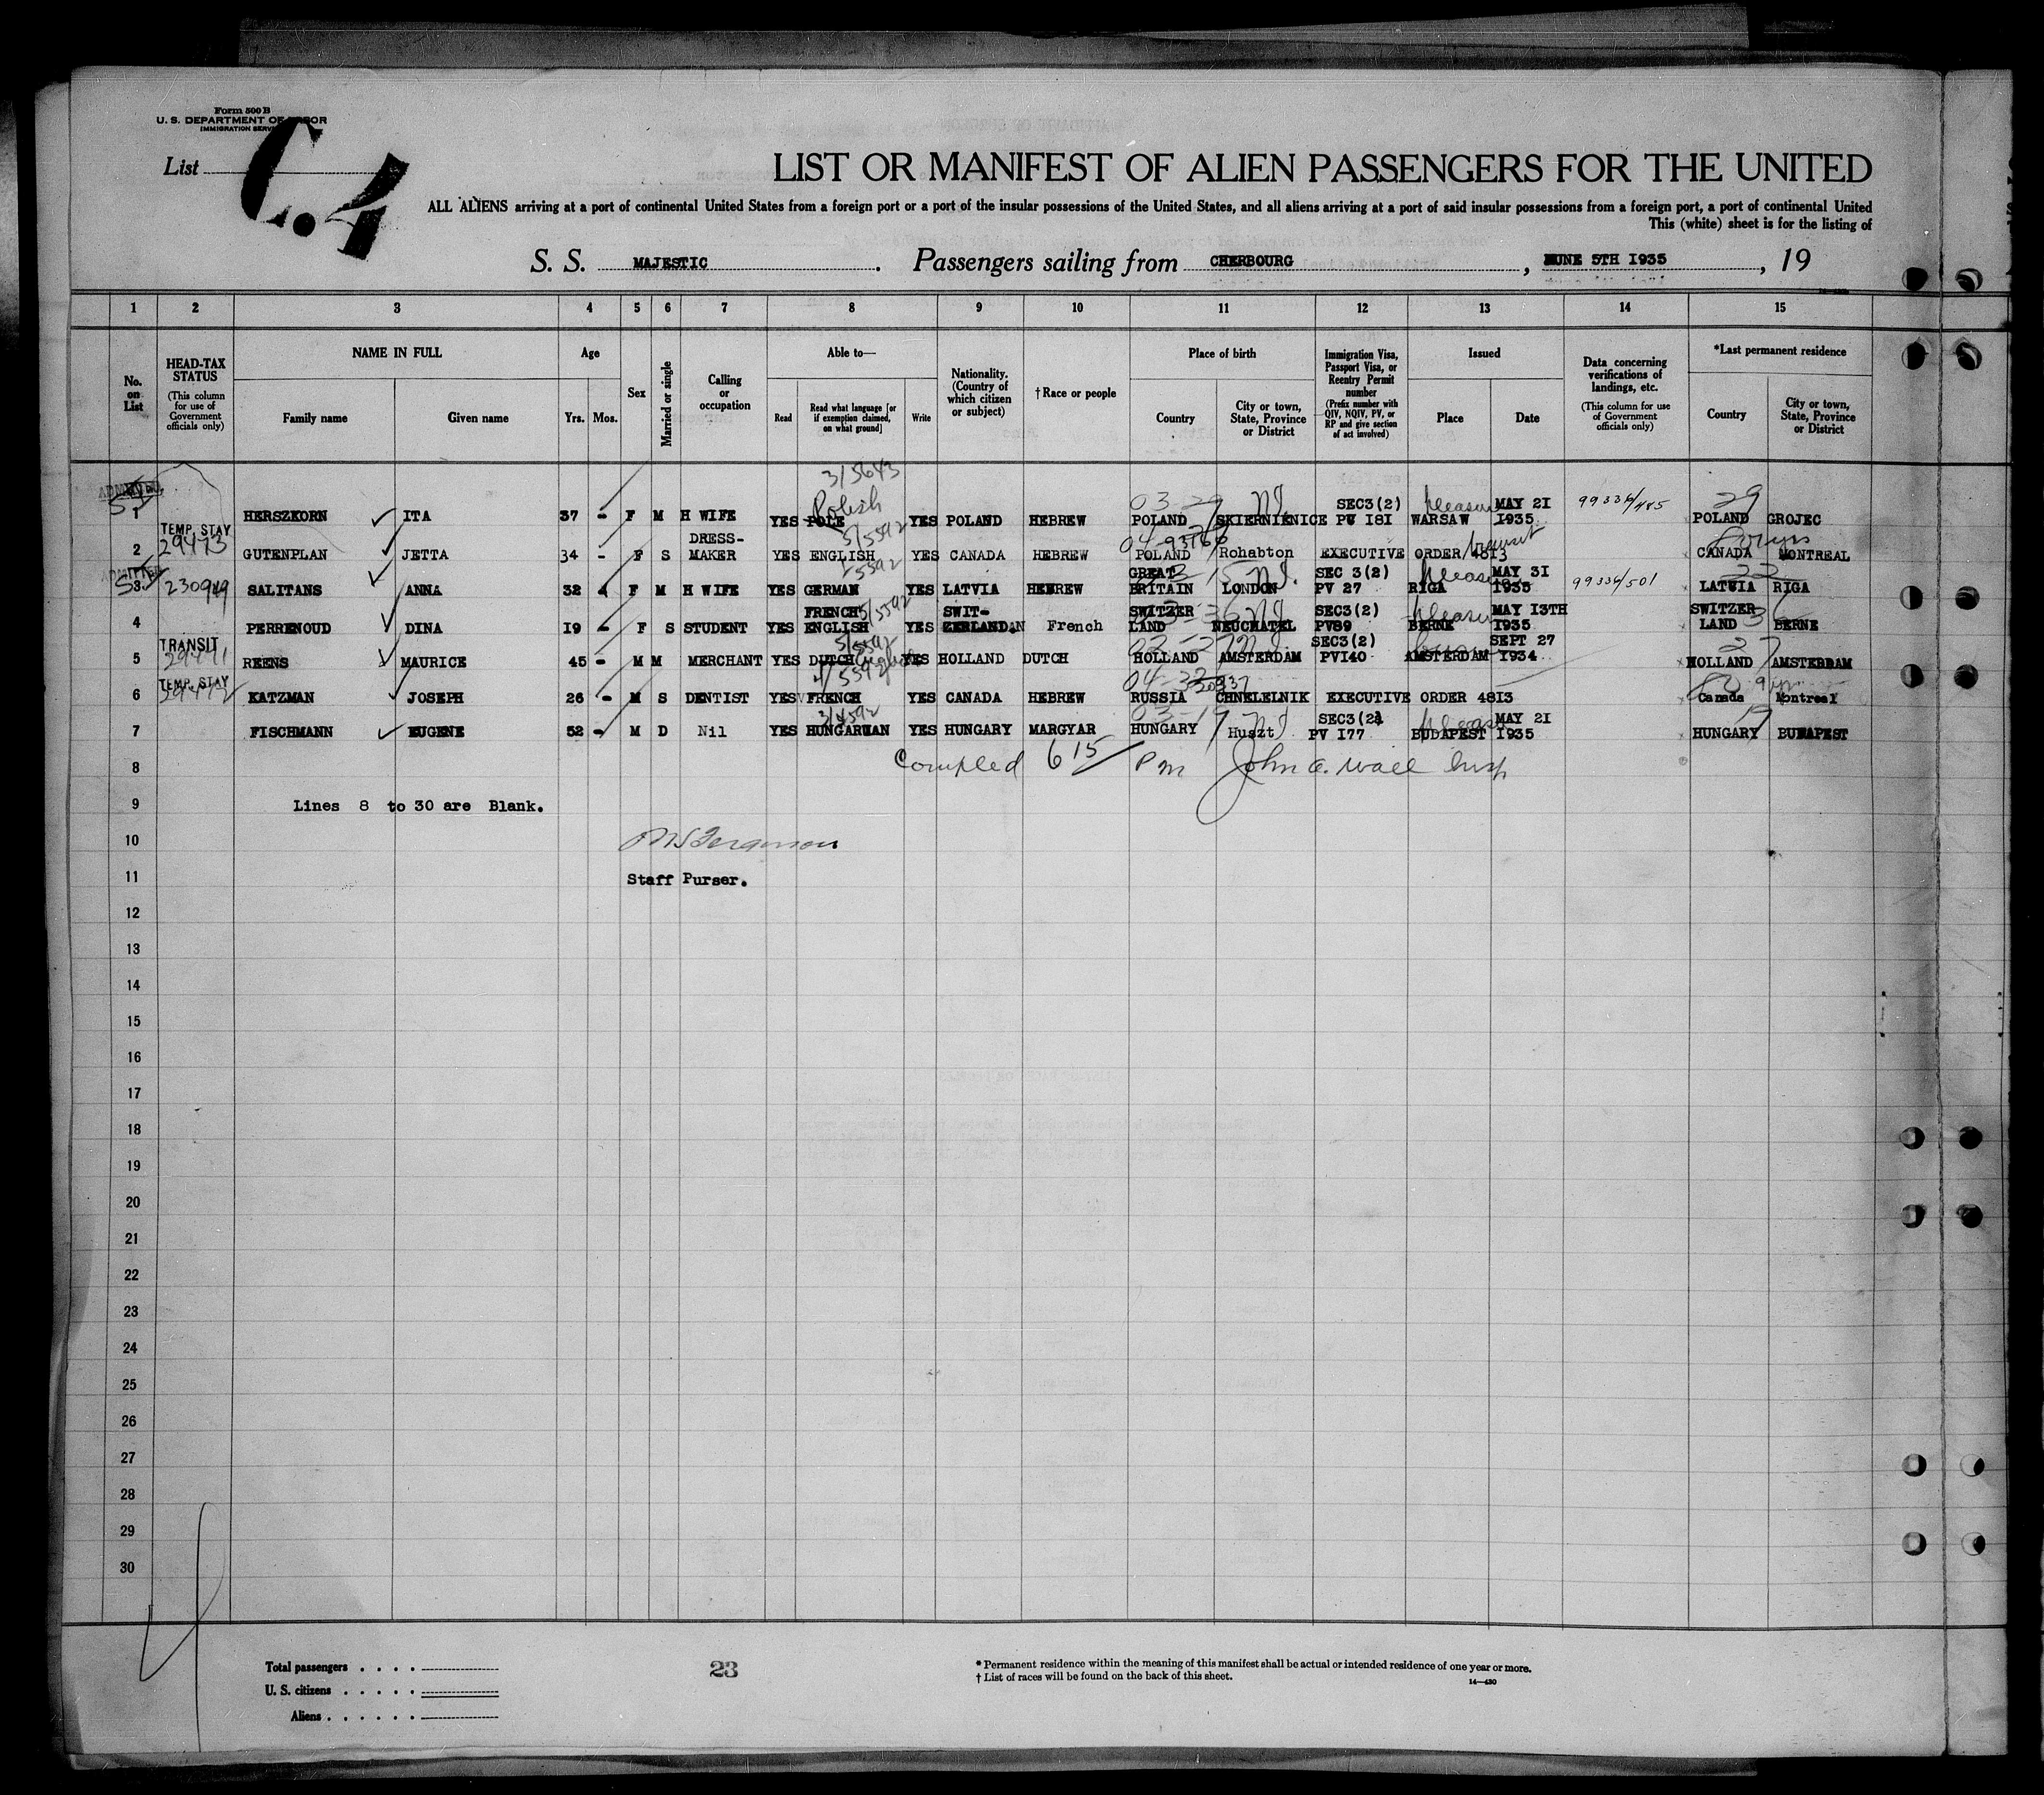 Form 500 B
U. S. DEPARTMENT OF LABOR
IMMIGRATION SERVICE
List C.4
LIST OR MANIFEST OF ALIEN PASSENGERS FOR THE UNITED
ALL ALIENS arriving at a port of continental United States from a foreign port or a port of the insular possessions of the United States, and all aliens arriving at a port of said insular possessions from a foreign port, a port of continental United
This (white) sheet is for the listing of
S. S. MAJESTIC. Passengers sailing from CHERBOURG, JUNE 5TH 1935, 19
1 2 3 4 5 6 7 8 9 10 11 12 13 14 15
No. on List
HEAD-TAX STATUS
(This column for use of Government officials only)
NAME IN FULL
Family name Given name
Age
Yrs. Mos.
Sex
Married or single
Calling or occupation
Able to—
Read
Read what language [or if exemption claimed, on what ground]
Write
Nationality. (Country of which citizen or subject)
† Race or people
Place of birth
Country
City or town, State, Province or District
Immigration Visa, Passport Visa, or Reentry Permit number
(Prefix number with QIV, NQIV, PV, or RP and give section of act involved)
Issued
Place Date
Data concerning verifications of landings, etc.
(This column for use of Government officials only)
*Last permanent residence
Country
City or town, State, Province or District
3/5643
ADMITTED Polish 03-29 SEC3(2) pleasure MAY 21 99336/485 29
1 HERSZKORN ITA 37 - F M H WIFE YES POLE YES POLAND HEBREW POLAND SKIERNIENICE PV 181 WARSAW 1935 POLAND GROJEC
TEMP. STAY 29473 DRESS- 5/5592 04-93760 transit
2 GUTENPLAN JETTA 34 - F S MAKER YES ENGLISH YES CANADA HEBREW POLAND Rohabton EXECUTIVE ORDER 4813 CANADA MONTREAL
ADMITTED GREAT SEC 3(2) pleasure MAY 31 99336/501
3 230949 SALITANS ANNA 32 F M H WIFE YES GERMAN YES LATVIA HEBREW BRITAIN LONDON PV 27 RIGA 1935 LATVIA RIGA
FRENCH 5/5592 SWIT- SWITZER SEC3(2) pleasure MAY 13TH SWITZER
4 PERRENOUD DINA 19 - F S STUDENT YES ENGLISH YES ZERLAND French LAND NEUCHATEL PV89 BERNE 1935 LAND BERNE
TRANSIT 29471 5/5592 03-27 SEC3(2) SEPT 27 27
5 REENS MAURICE 45 - M M MERCHANT YES DUTCH YES HOLLAND DUTCH HOLLAND AMSTERDAM PV140 AMSTERDAM 1934 HOLLAND AMSTERDAM
TEMP. STAY 29472 4/5592
6 KATZMAN JOSEPH 26 - M S DENTIST YES FRENCH YES CANADA HEBREW RUSSIA CHNELELNIK EXECUTIVE ORDER 4813 Canada Montreal
3/4592 03-19 SEC3(2) pleasure MAY 21 19
7 FISCHMANN EUGENE 52 - M D Nil YES HUNGARIAN YES HUNGARY MARGYAR HUNGARY Huszt PV 177 BUDAPEST 1935 HUNGARY BUDAPEST
8 Compled 6 15 Pm John A. Wall Insp
9 Lines 8 to 30 are Blank.
10
11 Staff Purser.
12
13
14
15
16
17
18
19
20
21
22
23
24
25
26
27
28
29
30
Total passengers . . . .
U. S. citizens . . . . .
Aliens . . . . . .
23
* Permanent residence within the meaning of this manifest shall be actual or intended residence of one year or more.
† List of races will be found on the back of this sheet.
14—430